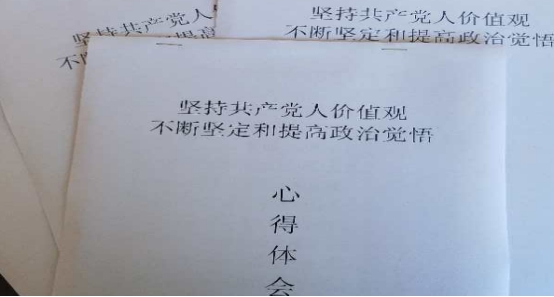 坚持共产党人
不 提高
坚持共产党人价值观
不断坚定和提高政治觉悟
坚持共产党人价值观
不断坚定和提高政治觉悟
心
得
体
会